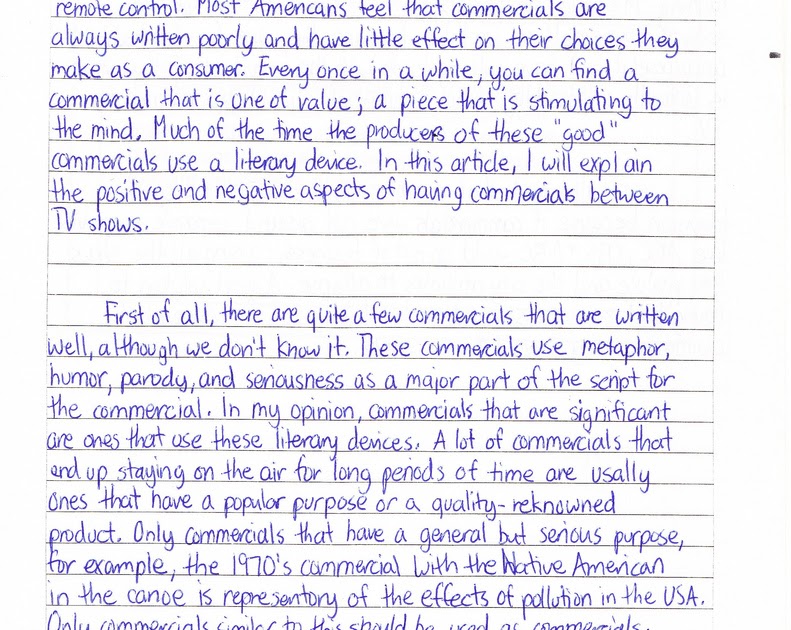 remote control. Most Americans feel that commercials are
always written poorly and have little effect on their choices they
make as a consumer. Every once in a while, you can find a
commercial that is one of value; a piece that is stimulating to
the mind. Much of the time the producers of these "good"
commercials use a literary device. In this article, I will explain
the positive and negative aspects of having commercials between
TV shows.
First of all, there are quite a few commercials that are written
well, although we don't know it. These commercials use metaphor,
humor, parody, and seriousness as a major part of the script for
the commercial. In my opinion, commercials that are significant
are ones that use these literary devices. A lot of commercials that
end up staying on the air for long periods of time are usally
ones that have a popular purpose or a quality-reknowned
product. Only commercials that have a general but serious purpose,
for example, the 1970's commercial with the Native American
in the canoe is representory of the effects of pollution in the USA.
Only commercials similar to this should be used as commercials.